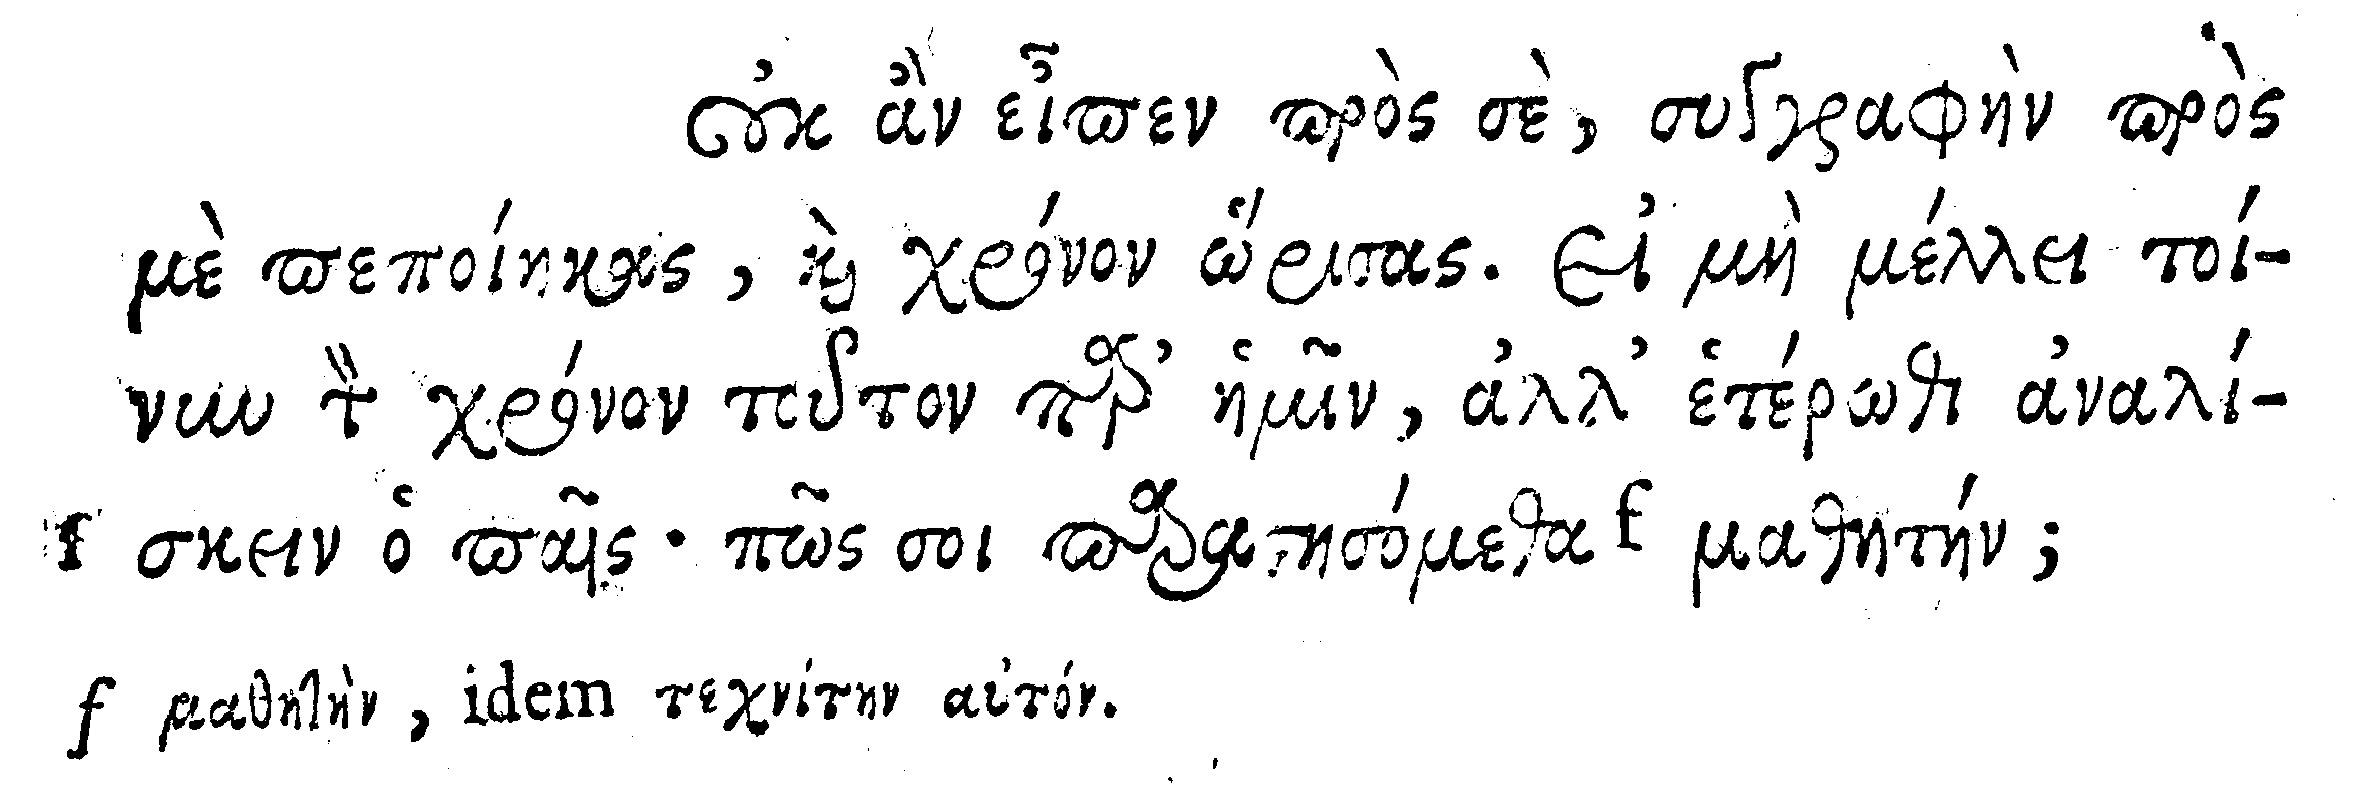 Οὐκ ἂν εἶπεν πρὸς σὲ, συγγραφὴν πρὸς
μὲ πεποίηκας, καὶ χρόνον ὥρισας. Εἰ μὴ μέλλει τοί-
νυν τὸν χρόνον τοῦτον παρ' ἡμῖν, ἀλλ' ἑτέρωθι ἀναλί-
f σκειν ὁ παῖς· πῶς σοι παραστησόμεθα f μαθητήν;
f μαθητὴν, idem τεχνίτην αὐτόν.